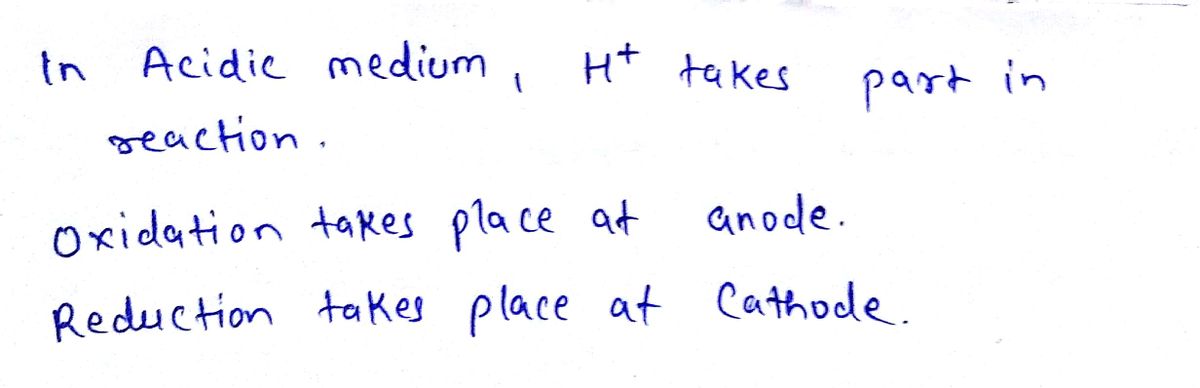 In Acidic medium, H+ takes part in
reaction.
Oxidation takes place at anode.
Reduction takes place at Cathode.